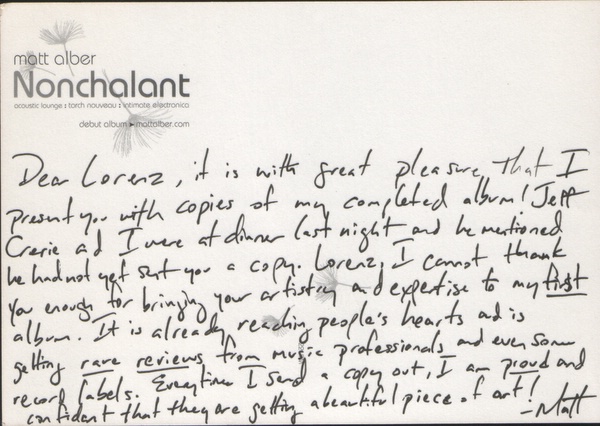 matt alber
Nonchalant
acoustic lounge : torch nouveau : intimate electronica
debut album ▸ mattalber.com
Dear Lorenz, it is with great pleasure that I
present you with copies of my completed album! Jeff
Crerie ad I were at dinner last night and he mentioned
he had not yet sent you a copy. Lorenz, I cannot thank
you enough for bringing your artistry and expertise to my first
album. It is already reaching people's hearts ad is
getting rave reviews from music professionals and even some
record labels. Everytime I send a copy out, I am proud and
confidant that they are getting a beautiful piece of art!
- Matt